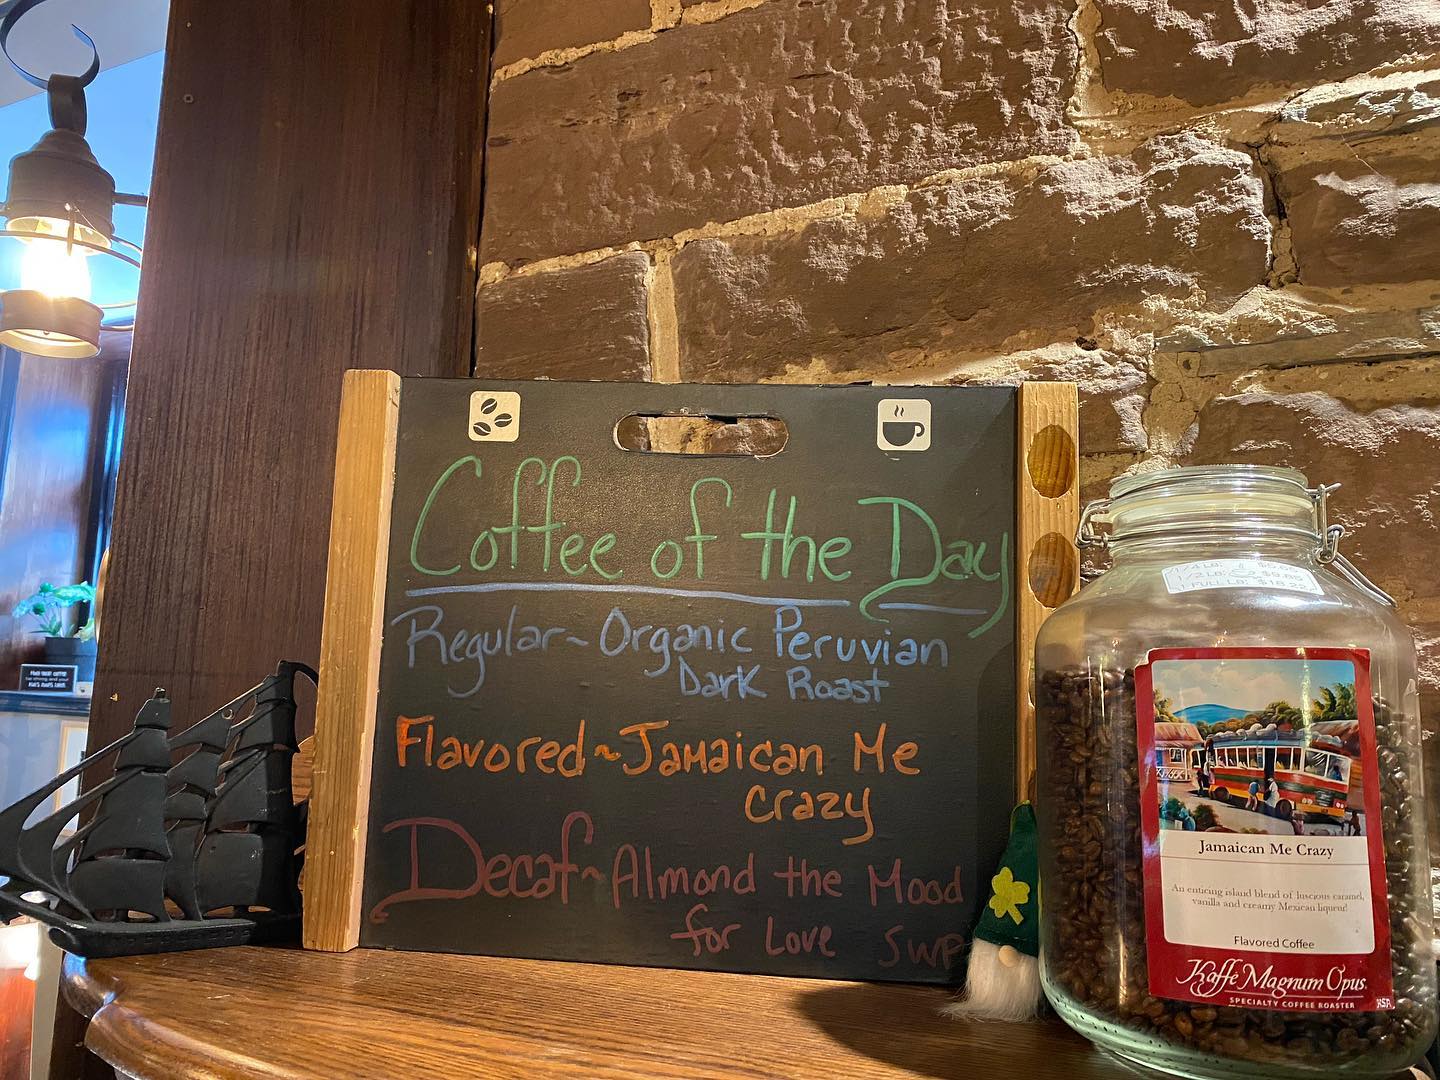 Coffee of the Day
Regular~Organic Peruvian
Dark Roast
Flavored~Jamaican Me
Crazy
Decaf~Almond the Mood
for Love SWP
1/4 LB:
1/2 LB: $9.85
1 FULL LB: $18.25
Jamaican Me Crazy
An enticing island blend of luscious caramel,
vanilla and creamy Mexican liqueur!
Flavored Coffee
Kaffé Magnum Opus
SPECIALTY COFFEE ROASTER